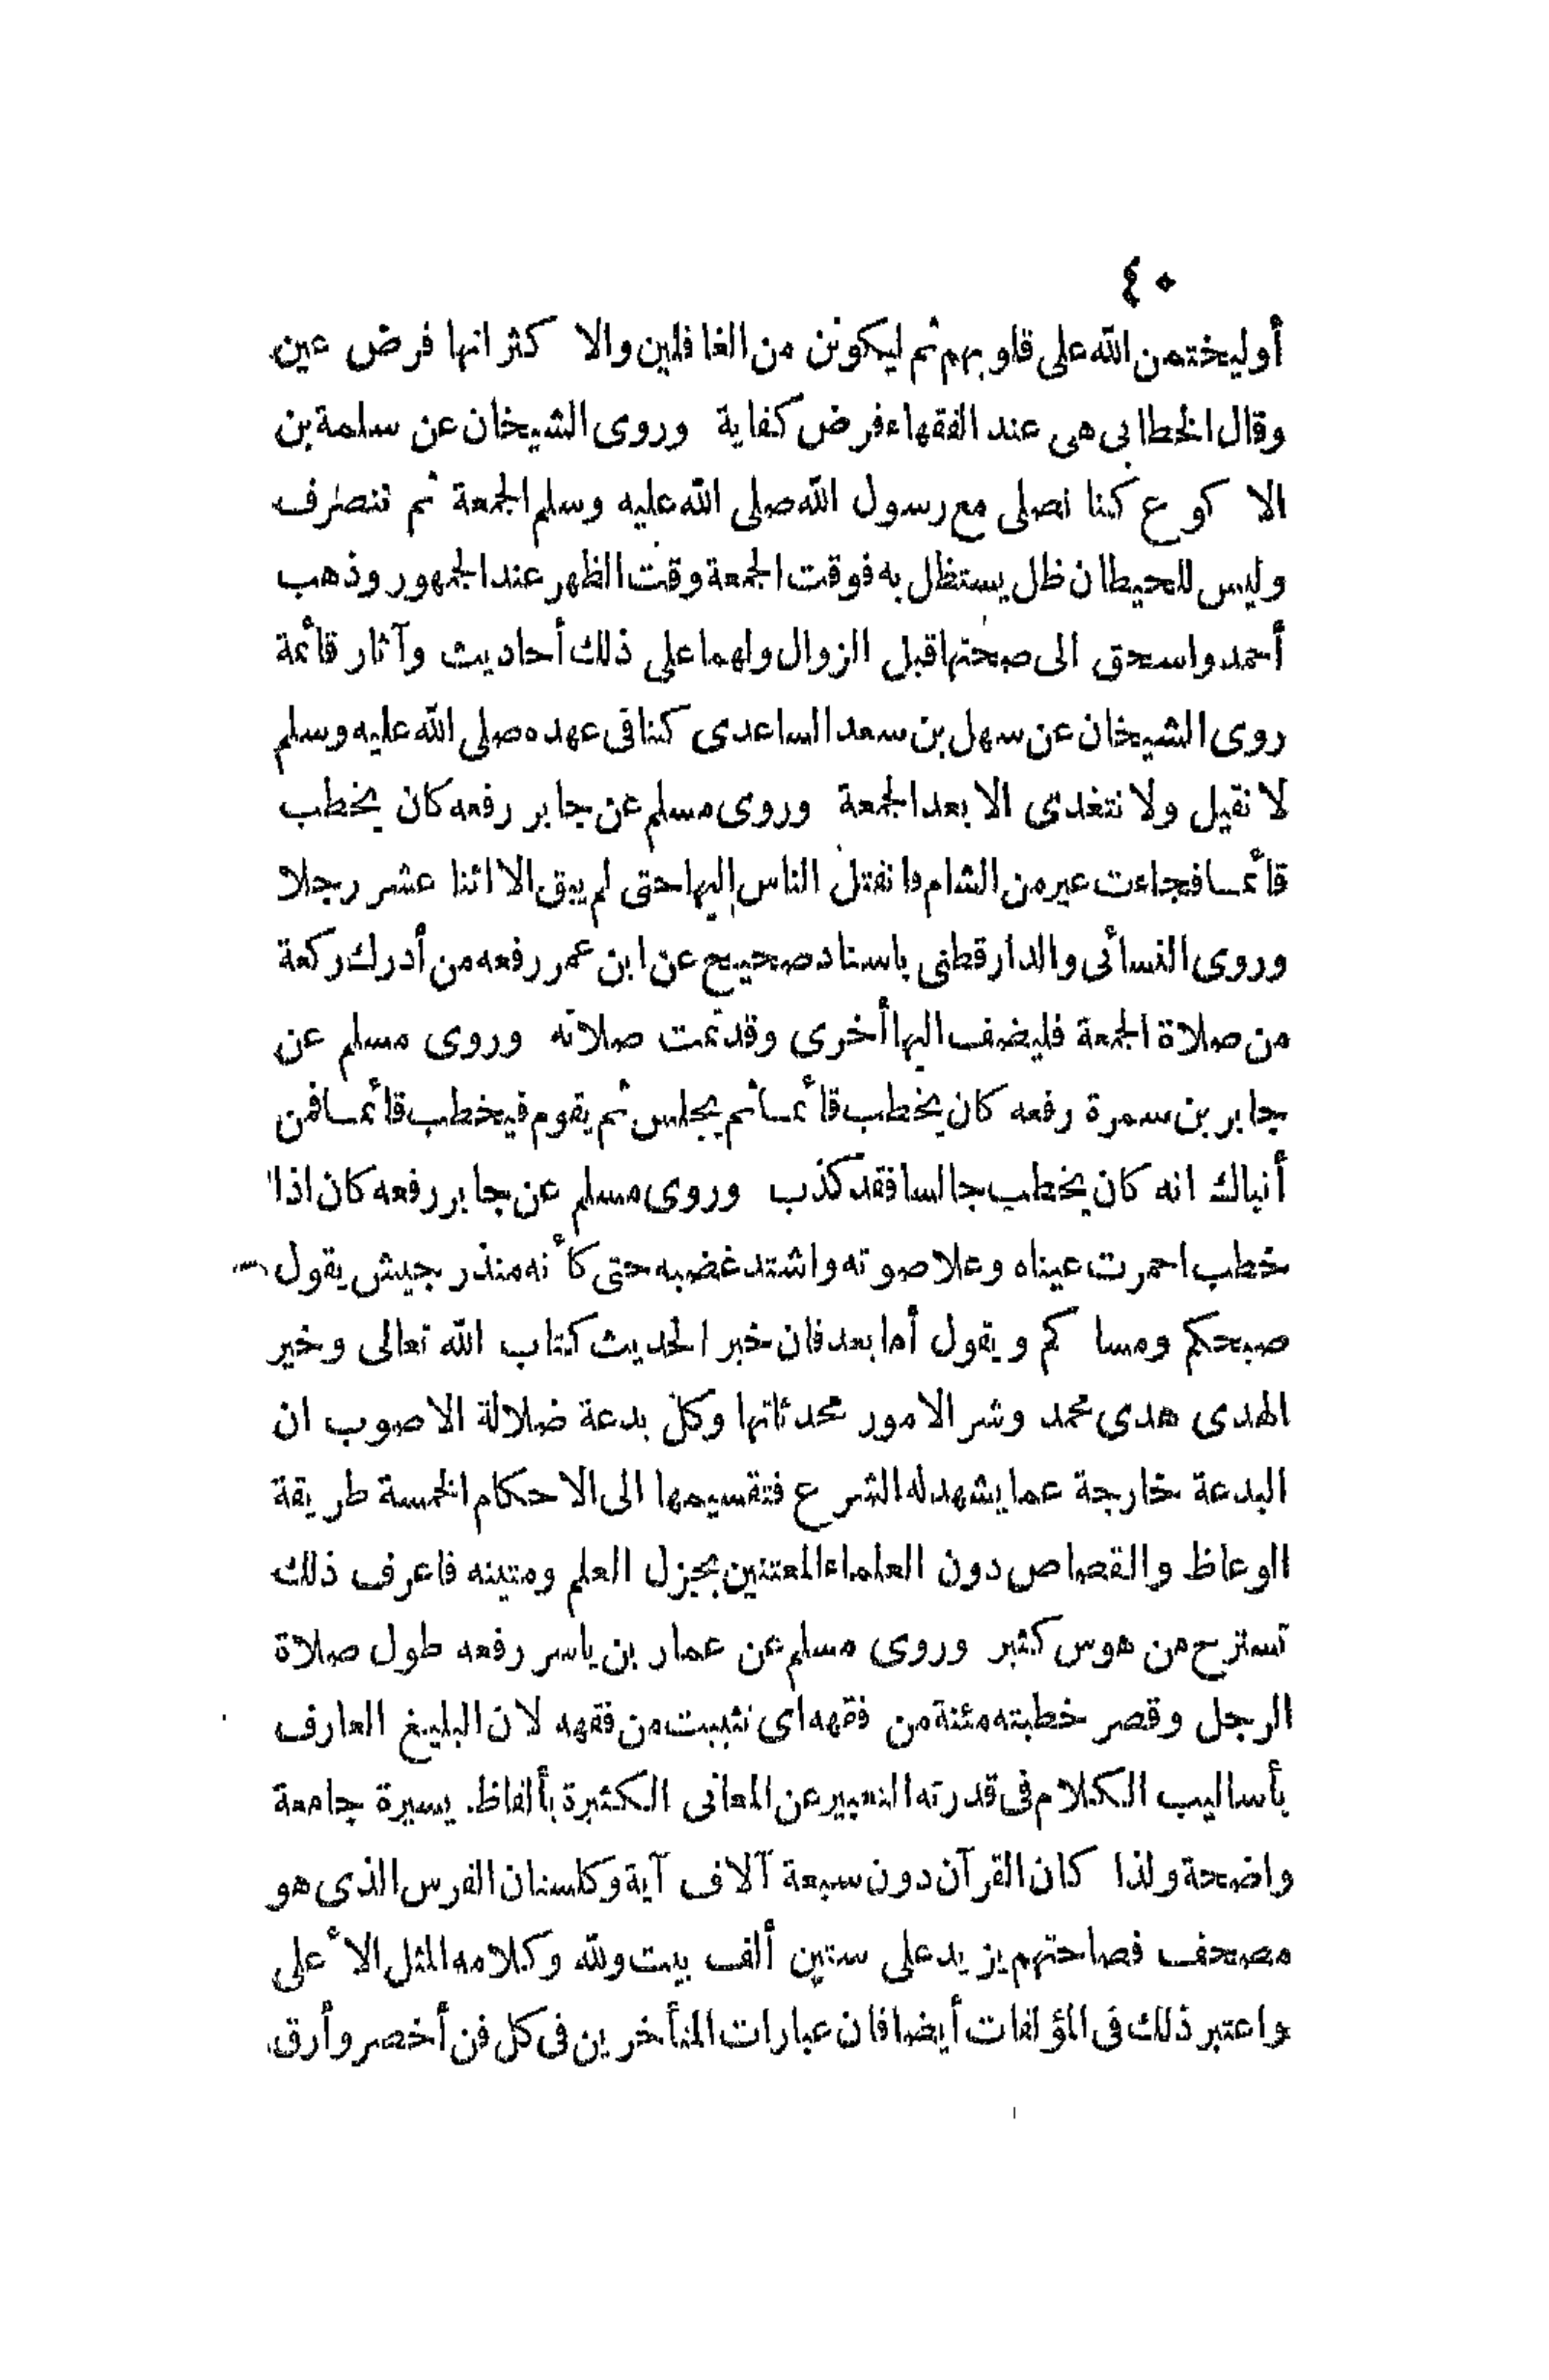 ٤٠
أوليختمن الله على قلوبهم ثم ليكونن من الغافلين والاكثر انها فرض عين
وقال الخطابى هى عند الفقهاء فرض كفاية وروى الشيخان عن سلمة بن
الاكوع كنا نصلى مع رسول الله صلى الله عليه وسلم الجمعة ثم ننصرف
وليس للحيطان ظل يستظل به فوقت الجمعة وقت الظهر عند الجمهور وذهب
أحمد واسحق الى صحتها قبل الزوال ولهما على ذلك أحاديث وآثار قائمة
روى الشيخان عن سهل بن سعد الساعدى كنا فى عهده صلى الله عليه وسلم
لا نقيل ولا نتغدى الا بعد الجمعة وروى مسلم عن جابر رفعه كان يخطب
قائما فجاءت عير من الشام فانفتل الناس إليها حتى لم يبق الا اثنا عشر رجلا
وروى النسائى والدارقطنى باسناد صحيح عن ابن عمر رفعه من أدرك ركعة
من صلاة الجمعة فليضف اليها أخرى وقد تمت صلاته وروى مسلم عن
جابر بن سمرة رفعه كان يخطب قائما ثم يجلس ثم يقوم فيخطب قائما فمن
أنباك انه كان يخطب جالسا فقد كذب وروى مسلم عن جابر رفعه كان اذا
خطب احمرت عيناه وعلا صوته واشتد غضبه حتى كأنه منذر جيش يقول
صبحكم ومساكم ويقول أما بعد فان خير الحديث كتاب الله تعالى وخير
الهدى هدى محمد وشر الامور محدثاتها وكل بدعة ضلالة الاصوب ان
البدعة خارجة عما يشهد له الشرع فتقسيمها الى الاحكام الخمسة طريقة
الوعاظ والقصاص دون العلماء المعتنين بجزل العلم ومتينه فاعرف ذلك
تستريح من هوس كثير وروى مسلم عن عمار بن ياسر رفعه طول صلاة
الرجل وقصر خطبته مئنة من فقهه اى تثبيت من فقهه لان البليغ العارف
بأساليب الكلام فى قدرته التعبير عن المعانى الكثيرة بألفاظ يسيرة جامعة
واضحة ولذا كان القرآن دون سبعة آلاف آية وكلستان الفرس الذى هو
مصحف فصاحتهم يزيد على ستين ألف بيت ولله وكلامه المثل الأعلى
واعتبر ذلك فى المؤلفات أيضا فان عبارات المتأخرين فى كل فن أخصر وأرق